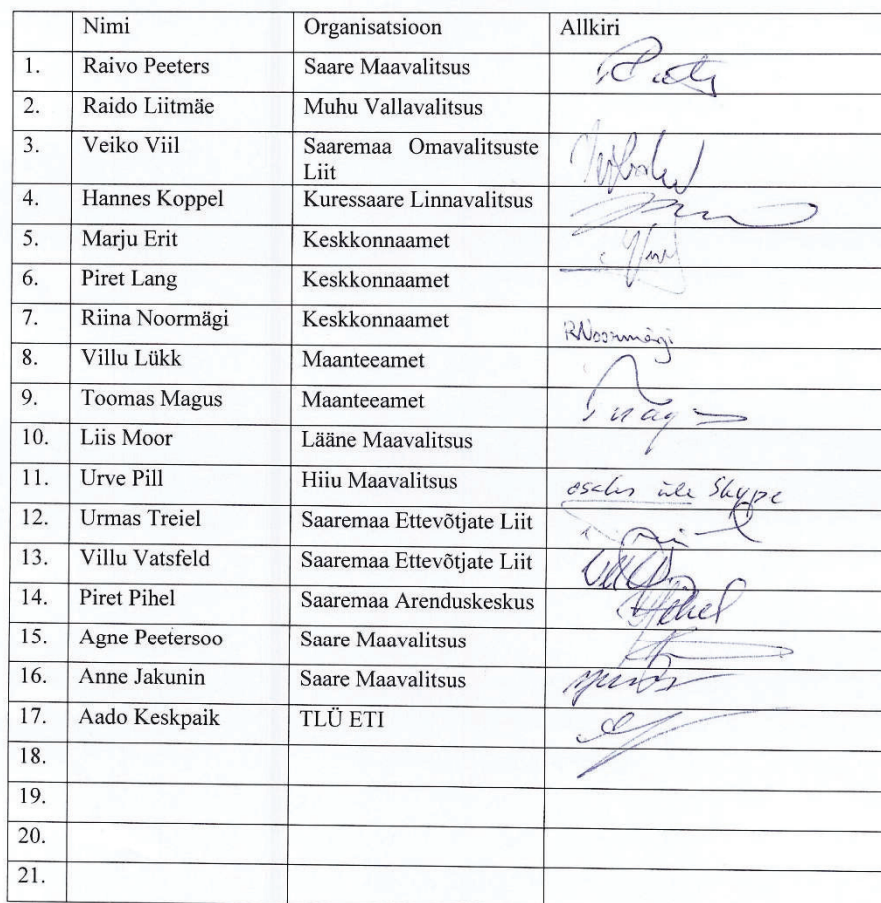 Nimi Organisatsioon Allkiri
1. Raivo Peeters Saare Maavalitsus
2. Raido Liitmäe Muhu Vallavalitsus
3. Veiko Viil Saaremaa Omavalitsuste
Liit
4. Hannes Koppel Kuressaare Linnavalitsus
5. Marju Erit Keskkonnaamet
6. Piret Lang Keskkonnaamet
7. Riina Noormägi Keskkonnaamet RNoormägi
8. Villu Lükk Maanteeamet
9. Toomas Magus Maanteeamet
10. Liis Moor Lääne Maavalitsus
11. Urve Pill Hiiu Maavalitsus osales üle Skype
12. Urmas Treiel Saaremaa Ettevõtjate Liit
13. Villu Vatsfeld Saaremaa Ettevõtjate Liit
14. Piret Pihel Saaremaa Arenduskeskus
15. Agne Peetersoo Saare Maavalitsus
16. Anne Jakunin Saare Maavalitsus
17. Aado Keskpaik TLÜ ETI
18.
19.
20.
21.